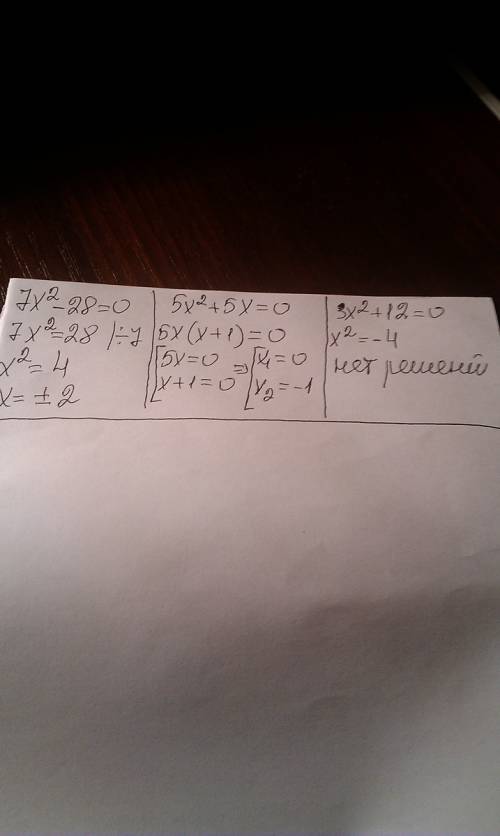 7x²-28=0
7x²=28 |÷7
x²=4
x=±2
5x²+5x=0
5x(x+1)=0
[5x=0 ⇒ [x₁=0
[x+1=0 [x₂=-1
3x²+12=0
x²=-4
нет решений